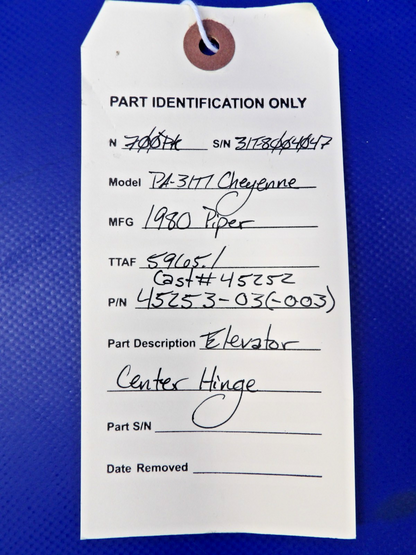 PART IDENTIFICATION ONLY
N 700PK S/N 31T-8004047
Model PA-31T1 Cheyenne
MFG 1980 Piper
TTAF 5965.1
Cast# 45252
P/N 45253-03(-003)
Part Description Elevator
Center Hinge
Part S/N
Date Removed